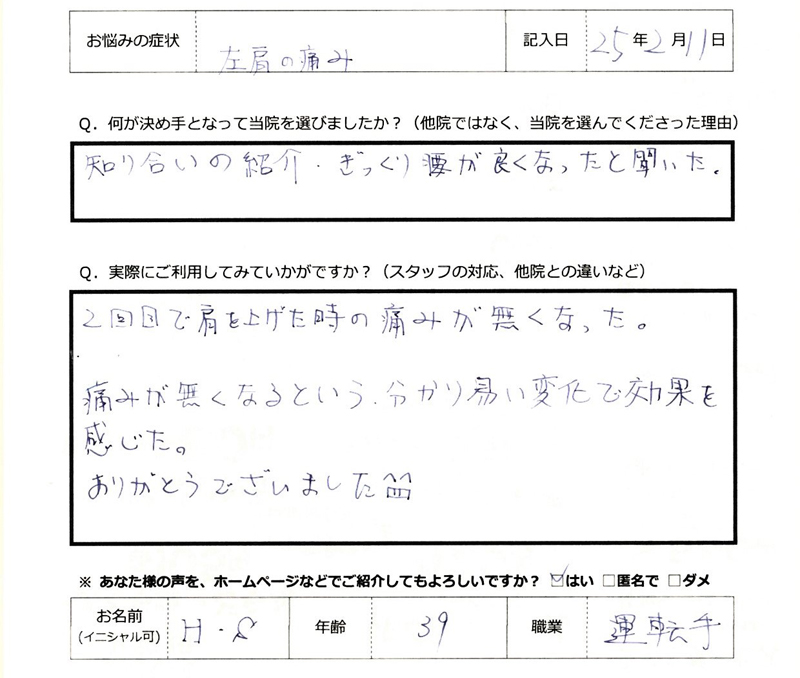 お悩みの症状 左肩の痛み 記入日 25年2月11日
Q．何が決め手となって当院を選びましたか？（他院ではなく、当院を選んでくださった理由）
知り合いの紹介・ぎっくり腰が良くなったと聞いた。
Q．実際にご利用してみていかがですか？（スタッフの対応、他院との違いなど）
2回目で肩を上げた時の痛みが無くなった。
痛みが無くなるという、分かり易い変化で効果を
感じた。
ありがとうございました
※ あなた様の声を、ホームページなどでご紹介してもよろしいですか？ ☑はい □匿名で □ダメ
お名前 H・S 年齢 39 職業 運転手
(イニシャル可)